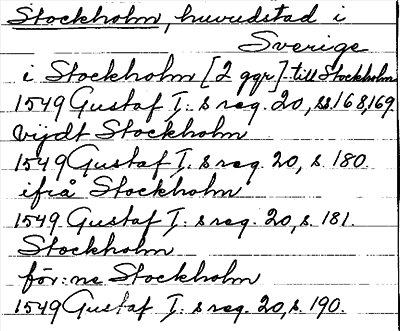 Stockholm, huvudstad i
Sverige
i Stockholm [2 ggr] - till Stockholm
1549 Gustaf I: s reg. 20, ss 168, 169.
vijdt Stockholm
1549 Gustaf I: s reg. 20, s. 180.
ifrå Stockholm
1549 Gustaf I: s reg. 20, s. 181.
Stockholm
för: ne Stockholm
1549 Gustaf I: s reg. 20, s. 190.